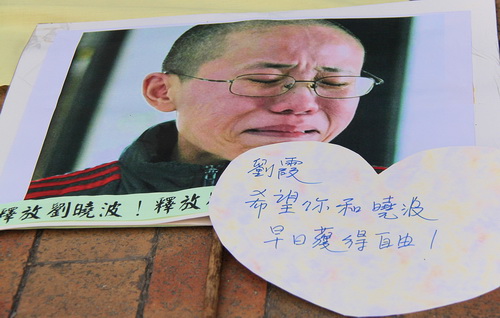 釋放劉曉波！釋放
劉霞
希望你和曉波
早日獲得自由！